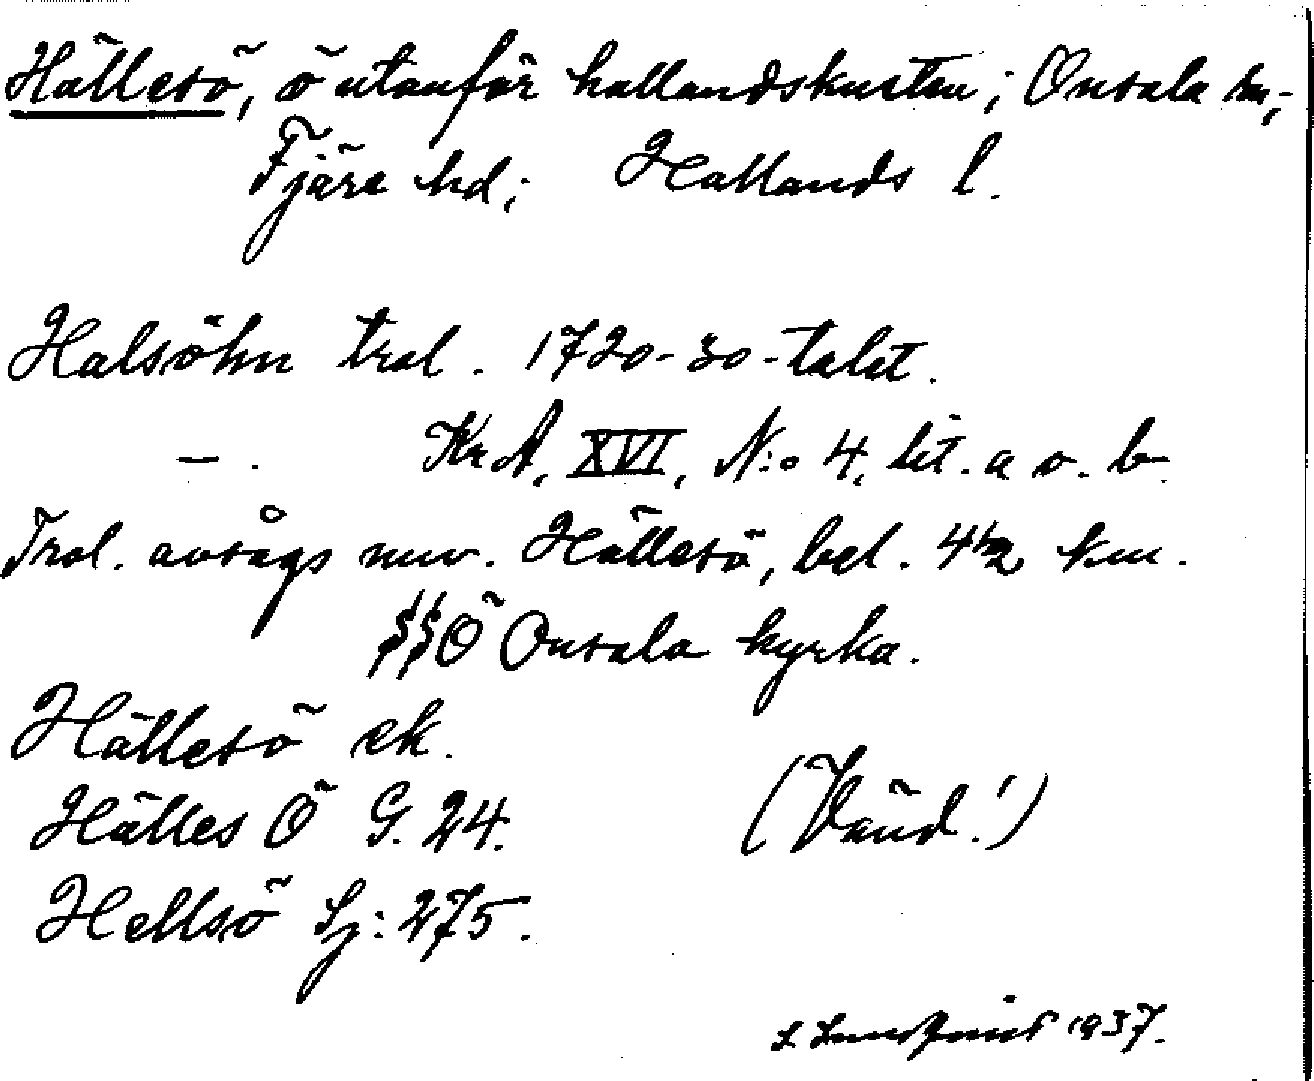 Hällesö, ö utanför hallandskusten; Onsala sn,
Fjäre hd; Hallands l.
Halsöhn trol. 1720-30-talet.
— . KrA, XVI, N:o 4, lit. a o. b.
Trol. avsågs nuv. Hällesö, bel. 4½ km.
SSÖ Onsala kyrka.
Hällesö ek.
Hälles Ö G. 24.
(Vänd!)
Hellsö Sj: 275.
S. Lundqvist 1937.